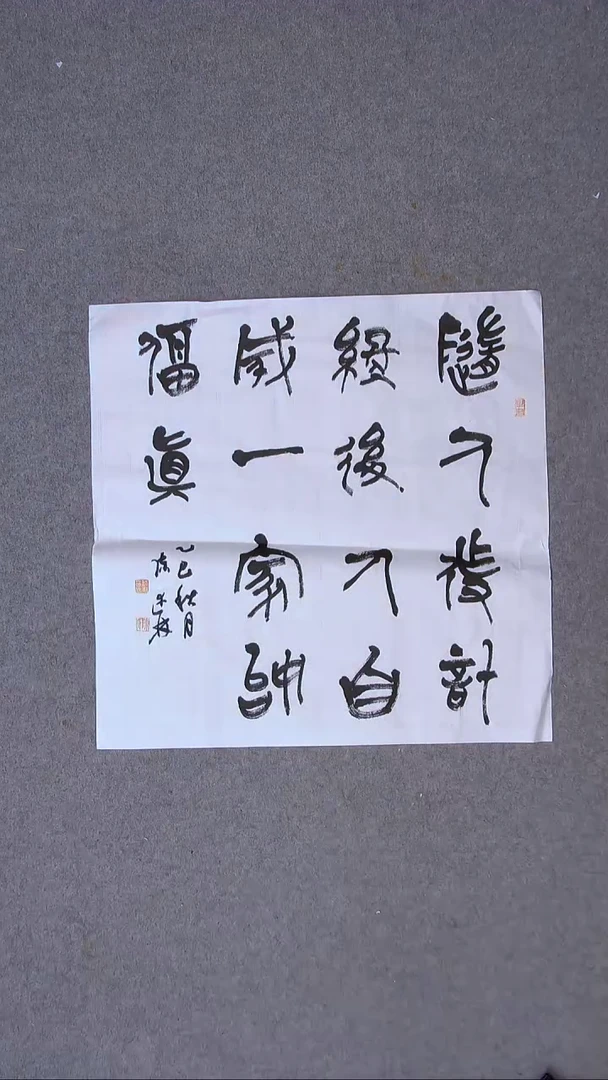 隨人作計
終後人自
成一家始
逼真
乙巳秋月